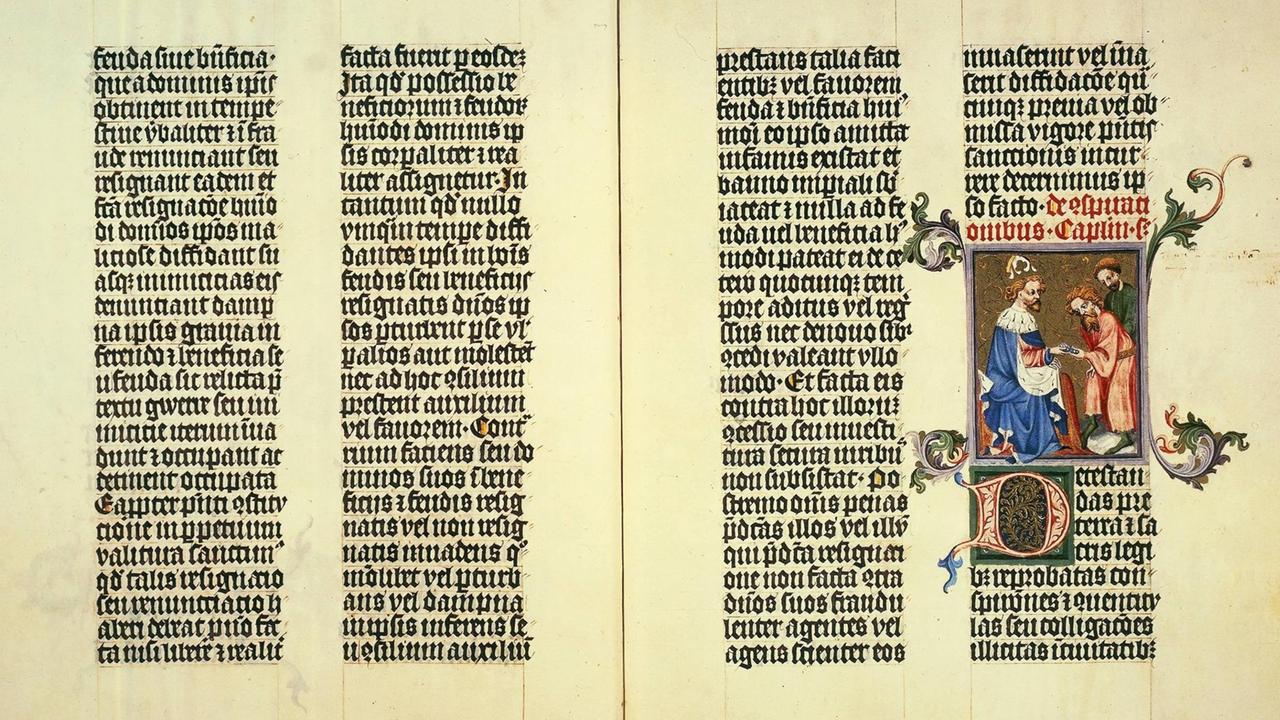 feuda siue bn̄ficia·
que a dominis ipīs
obtinent in tempe
stiue v̓baliter ⁊ ī fra
ude renunciant seu
resignant eadem et
fc̄ā resignacōe huiꝰo
di domīos ipos ma
liciose diffidant su
asqꝫ inimicicias eis
denunciant damp
na ipsis grauia in
ferendo ⁊ beneficia se
u feuda sic relicta p̄
textu gwerre seu ini
micicie iterum īua
dunt ⁊ occupant ac
detinent occupata
Eapꝓpter pn̄ti ꝯstitu
cione in ꝑpetuum
valitura sanccim̓
qd̓ talis resignacio
seu renunciacio h
aberi debeat ꝓ nō fac̄
ta nisi libere ⁊ realit̄
facta fuerit ꝑ eosdeꝫ
Ita qd̓ possessio be
neficiorum ⁊ feudoꝝ
huiꝰodi dominis ip
sis corꝑaliter ⁊ rea
liter assignetur· In
tantum qd̓ nullo
vnꝙ tempe diffi
dantes ipsi in bonis
feudis seu beneficijs
resignatis dn̄os ip
sos ꝑturbent ꝑ se vl̓
ꝑ alios aut molestēt
nec ad hoc ꝯsilium
prestent auxilium
vel fauorem· Cont̄
rium faciens seu do
minos suos ī bene
ficijs ⁊ feudis resig
natis vel non resig
natis inuadens qͦ
mōlibet vel ꝑturb
ans vel dampna
in ipsis inferens se
u ꝯsilium auxiliū
prestans talia faci
entibꝫ vel fauorem
feuda ⁊ bn̄ficia huiꝰ
mōi eoipso amittat
infamis existat et
banno imꝑiali sb̄
iaceat ⁊ nulla ad fe
uda uel beneficia hꝰ
modi pateat ei de ce
tero quocunqꝫ tem
pore aditus vel regᵃ
ssus nec denouo sibi
ꝯcedi valeant vllo
modo· Et facta eis
contra hoc illoruꝫ
ꝯcessio seu inuesti
tura secuta uiribꝰ
non subsistat· Po
stremo om̄s penas
p̄dc̄as illos vel illū
qui p̄dc̄a resignaci
one non facta ꝯtra
dn̄os suos fraudu
lenter agentes vel
agens scienter eos
inuaserint vel īua
serit diffidacōe qͣ
cunqꝫ preuia vel ob
missa vigore pn̄tis
sanctionis incur
rere decernimus ip
so facto· de ꝯspiraci
onibus· Caplm̄·
Detestan
das pre
terea ⁊ sa
cris legi
bꝫ reprobatas con
spirōnes ⁊ ꝯuenticu
las seu colligacōes
illicitas ī ciuitatibꝫ